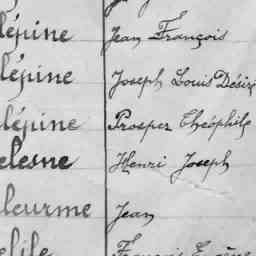 lépine Jean François
lépine Joseph Louis Désiré
lépine Prosper Théophile
elesne Henri Joseph
leurme Jean
elile François Eugène